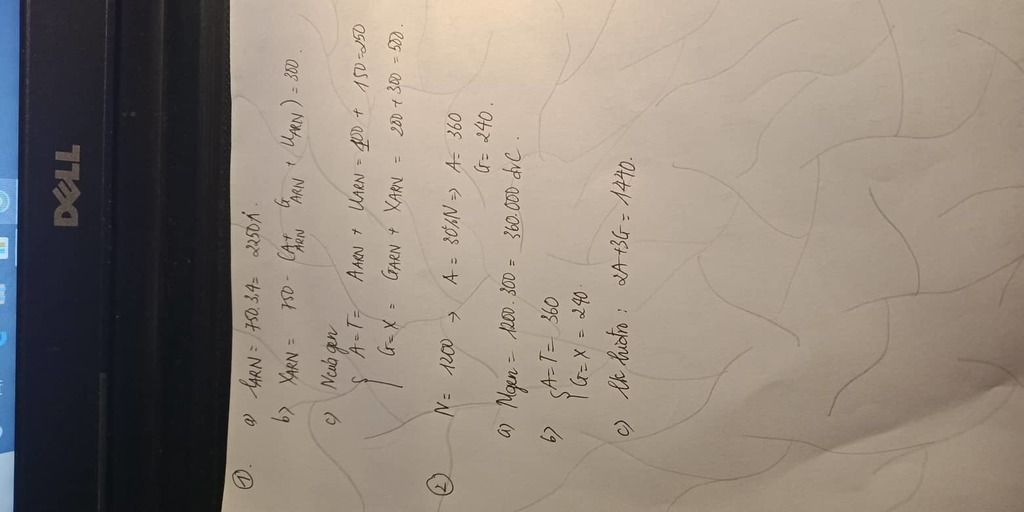 DELL
①.
a) lARN = 750.3,4 = 2250Å.
b) XARN = 750 - (AARN + GARN + UARN) = 300.
c) Nu gen
A = T = AARN + UARN = 100 + 150 = 250
G = X = GARN + XARN = 200 + 300 = 500.
②
N = 1200 → A = 30%N => A = 360
G = 240.
a) Mgen = 1200.300 = 360.000 đvC.
b) A = T = 360
G = X = 240.
c) lk hidro : 2A + 3G = 1440.